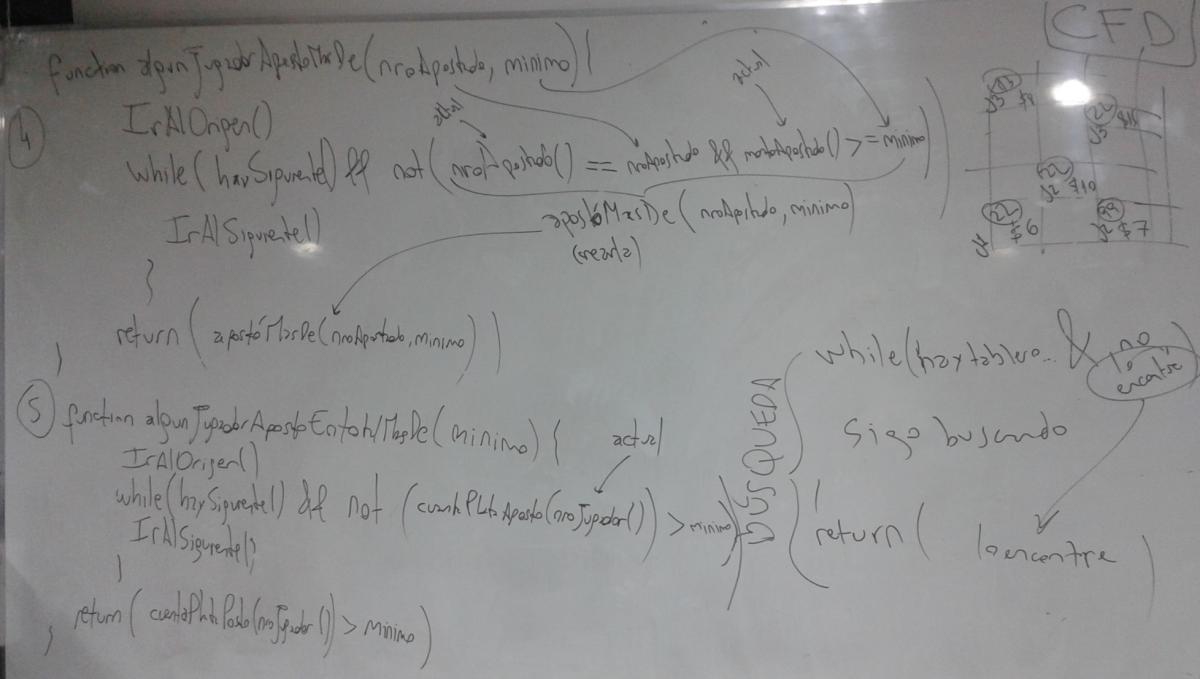 CFD
4
function algunJugadorApostoMasDe(nroApostado, minimo){
actual
actual
IrAlOrigen()
while(haySiguiente() && not(nroApostado() == nroApostado && montoApostado() >= minimo)
apostóMasDe(nroApostado, minimo)
(crearla)
IrAlSiguiente()
}
return(apostóMasDe(nroApostado, minimo))
}
J3 $4
22
J3
22
J2 $10
22
J1 $6
J2 $7
5
function algunJugadorApostoEnTotalMasDe(minimo){
actual
IrAlOrigen()
while(haySiguiente() && not (cuantaPlataAposto(nroJugador()) > minimo)
IrAlSiguiente()
}
return(cuantaPlataAposto(nroJugador()) > minimo)
}
BUSQUEDA
while(haytablero... & no lo encontré)
Sigo buscando
}
return( lo encontre )